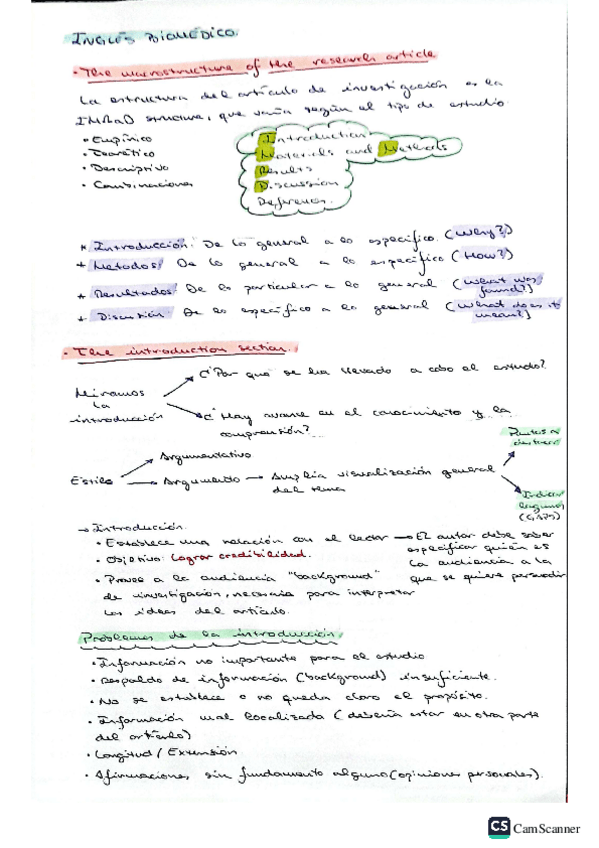 INGLÉS BIOMÉDICO.
• The macrostructure of the research article
La estructura del artículo de investigación es la
IMRaD structure, que varía según el tipo de estudio.
• Empírico
• Teorético
• Descriptivo
• Combinaciones
Introduction
Materials and Methods
Results
Discussion
References.
* Introducción: De lo general a lo específico. (Why?)
* Métodos: De lo general a lo específico (How?)
* Resultados: De lo particular a lo general (What was found?)
* Discusión: De lo específico a lo general (What does it mean?)
• The introduction section.
Miramos la introducción
¿Por qué se ha llevado a cabo el estudio?
¿Hay avance en el conocimiento y la
comprensión?
Estilo
Argumentativo
Argumento → Amplia visualización general
del tema
Puntos a destacar
Indicar lagunas (GAPS)
→ Introducción.
• Establece una relación con el lector → El autor debe saber
especificar quién es
la audiencia a la
que se quiere persuadir
• Objetivo: Lograr credibilidad.
• Provee a la audiencia "background"
de investigación, necesaria para interpretar
las ideas del artículo.
Problemas de la introducción.
• Información no importante para el estudio
• Respaldo de información (background) insuficiente.
• No se establece o no queda claro el propósito.
• Información mal localizada (debería estar en otra parte
del artículo)
• Longitud / Extensión
• Afirmaciones, sin fundamento alguno (opiniones personales).
CS CamScanner